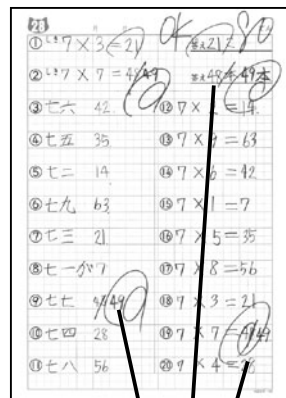 OK 80
① しき 7 × 3 = 21 答え 21こ
② しき 7 × 7 = 48 49 答え 48本 49本
③ 七六 42
④ 七五 35
⑤ 七二 14
⑥ 七九 63
⑦ 七三 21
⑧ 七一が 7
⑨ 七七 49
⑩ 七四 28
⑪ 七八 56
⑫ 7 × = 14
⑬ 7 × 9 = 63
⑭ 7 × 6 = 42
⑮ 7 × 1 = 7
⑯ 7 × 5 = 35
⑰ 7 × 8 = 56
⑱ 7 × 3 = 21
⑲ 7 × 7 = 49
⑳ 7 × 4 = 28